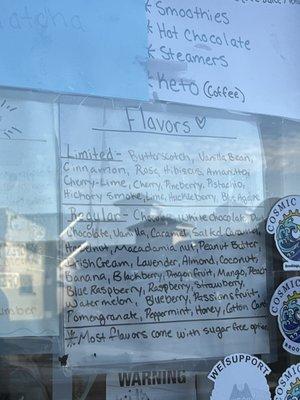 *Smoothies
*Hot Chocolate
*Steamers
*Keto (Coffee)
Flavors ♡
Limited:- Butterscotch, Vanilla Bean,
Cinnamon, Rose, Hibiscus, Amaretto,
Cherry-Lime, Cherry, Pineberry, Pistachio,
Hickory Smoke, Lime, Huckleberry, Blue Agave
Regular:- White Chocolate,
Chocolate, Vanilla, Caramel, Salted Caramel,
Hazelnut, Macadamia nut, Peanut Butter
Irish Cream, Lavender, Almond, Coconut
Banana, Blackberry, Dragonfruit, Mango, Peach
Blue Raspberry, Raspberry, Strawberry,
Watermelon, Blueberry, Passionfruit,
Pomegranate, Peppermint, Honey, Cotton Can
*Most flavors come with sugar free option
COSMIC
COSMIC
COSMIC
WARNING
WE SUPPORT